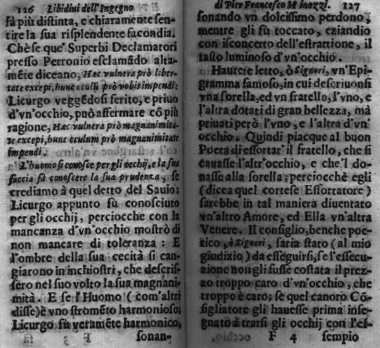 126 Libidini dell'Ingegno
sà più distinta, e chiaramente sen-
tire la sua risplendente facondia.
Chè se que' Superbi Declamatori
presso Petronio esclamādo altamēte diceano, Hæc vulnera prò liber-
tate excepi, hunc oculū prò vobis impendi:
Licurgo veggēdosi ferito, e priuo
d'vn'occhio, può affermare cō più
ragione, Hæc vulnera prò magnanimita-
te excepi, hunc oculum prò magnanimitate
impendi.
L'huomo si conosce per gli occhij, e la sua
faccia fà conoscere la sua prudenza, se
crediamo à quel detto del Sauio:
Licurgo appunto fù conosciuto
per gli occhij, perciocche con la
mancanza d'vn'occhio mostrò di
non mancare di toleranza: E
l'ombre della sua cecità si can-
giarono in inchiostri, che descris-
sero nel suo volto la sua magnani-
mità. E se l'Huomo (com'altri
disse) è vno stromēto harmonioso;
Licurgo fù veramēte harmonico,
sonan-
di Pier Francesco Minozzi. 127
sonando vn dolcissimo perdono,
mentre gli fù toccato, eziandio
con isconcerto dell'estrattione, il
tasto luminoso d'vn'occhio.
Hauete letto, ò Signori, vn'Epi-
gramma famoso, in cui descriuonsi
vna sorella, ed vn fratello, l'vno, e
l'altra dotati di gran bellezza, mà
priuati però l'vno, e l'altra d'vn'
occhio. Quindi piacque al buon
Poeta di essortar'il fratello, che si
cauasse l'altr'occhio, e che'l do-
nasse alla sorella; perciocchè egli
(dicea quel cortese Essortatore)
sarebbe in tal maniera diuentato
vn'altro Amore, ed Ella vn'altra
Venere. Il consiglio, benche poe-
tico, ò Signori, saria stato (al mio
giudizio) da esseguirsi, se l'essecu-
zione non gli fusse costata il prez-
zo troppo caro d'vn'occhio, che
troppo è caro; se quel canoro Cō-
sigliatore gli hauesse prima inse-
gnato à trarsi gli occhij con l'es-
F 4 sempio